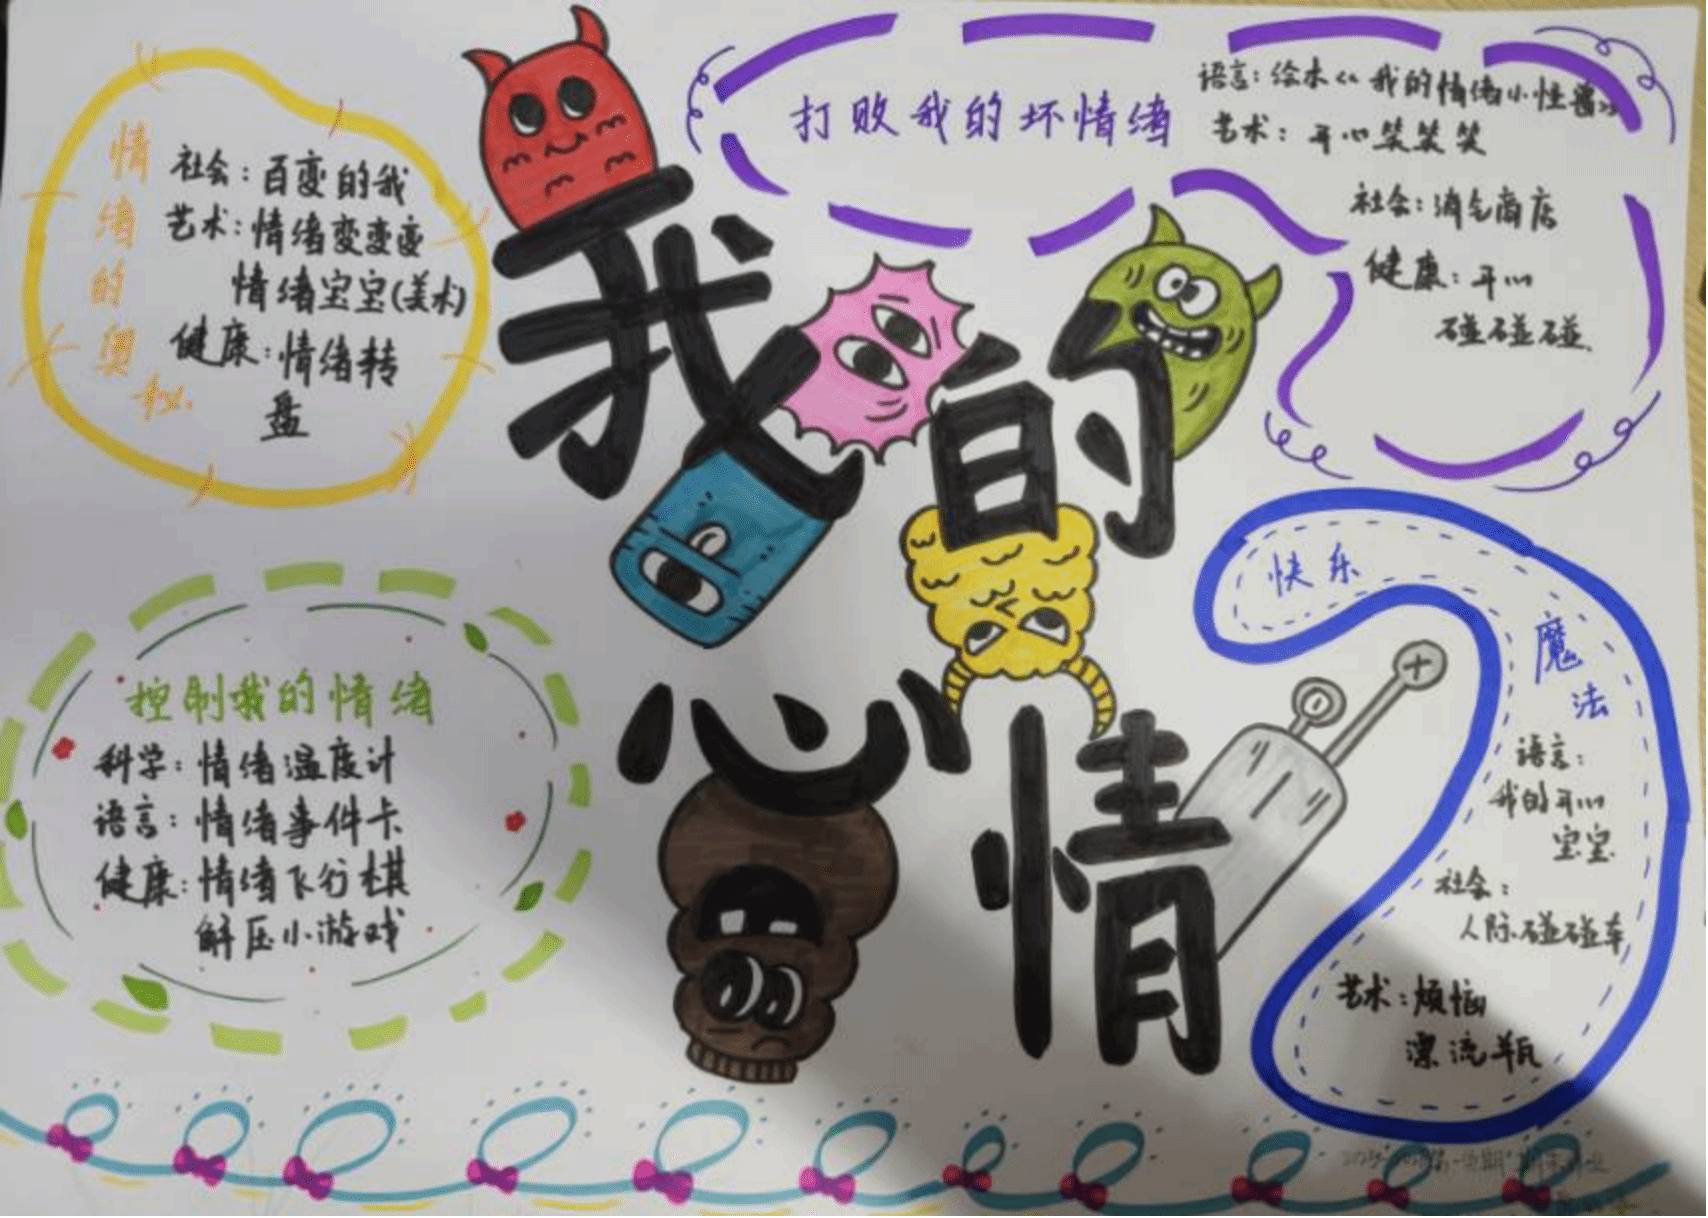 我的心情
情绪的奥秘
社会：百变的我
艺术：情绪变变变
情绪宝宝(美术)
健康：情绪转
盘
打败我的坏情绪
语言：绘本《我的情绪小怪兽》
艺术：开心笑笑笑
社会：消气商店
健康：开心
碰碰碰
控制我的情绪
科学：情绪温度计
语言：情绪事件卡
健康：情绪飞行棋
解压小游戏
快乐
魔
法
语言：
我的开心
宝宝
社会：
人际碰碰车
艺术：烦恼
漂流瓶